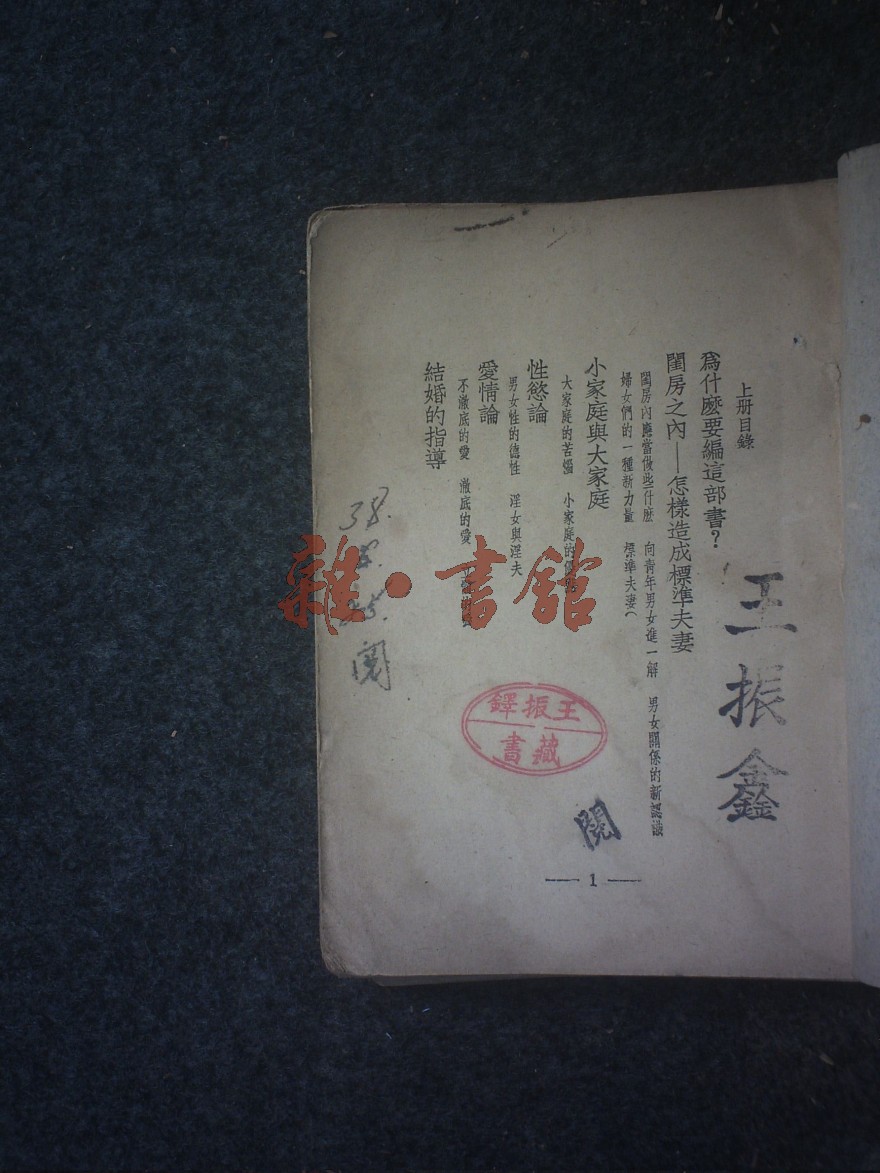 上册目錄
爲什麽要編這部書？
閨房之內——怎樣造成標準夫妻
閨房內應當做些什麽　向青年男女進一解　男女關係的新認識
婦女們的一種新力量　標準夫妻
小家庭與大家庭
大家庭的苦惱　小家庭的
性慾論
男女性的德性　淫女與淫夫
愛情論
不澈底的愛　澈底的愛
結婚的指導
王振鑫
38.
閱
雜·書館
王振鐸
藏書
閱
— 1 —